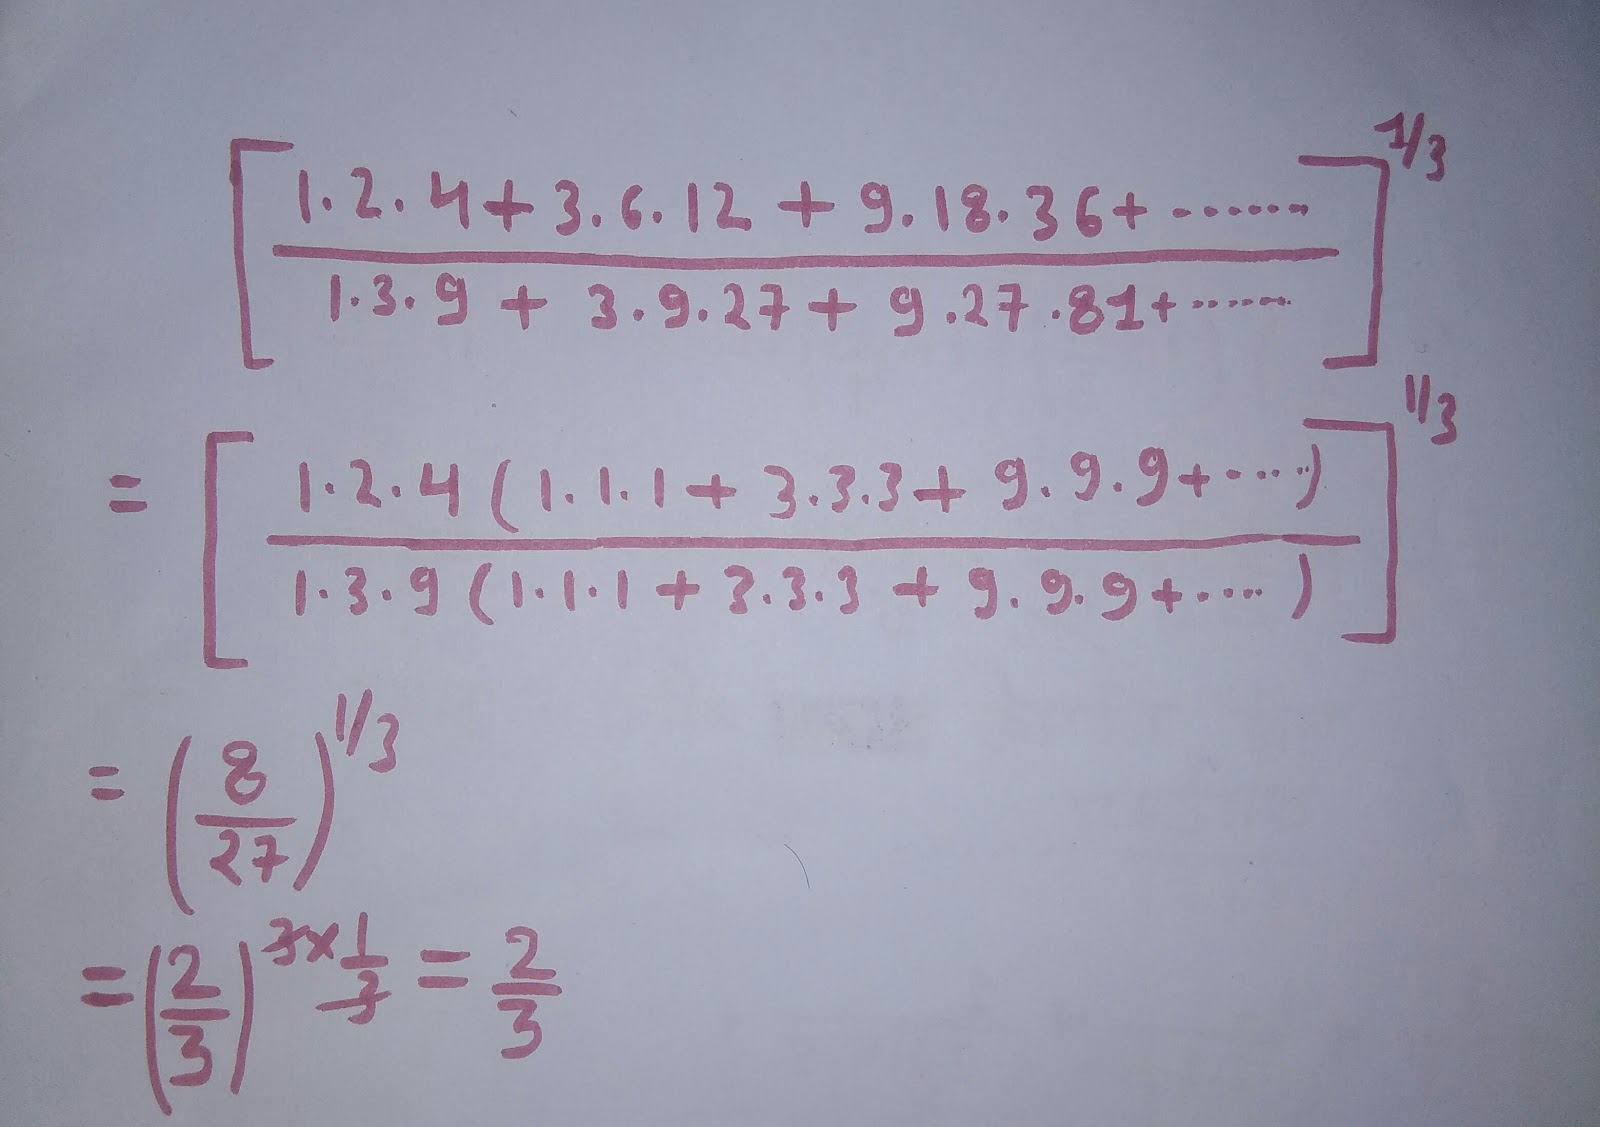 [ (1.2.4 + 3.6.12 + 9.18.36 + ......) / (1.3.9 + 3.9.27 + 9.27.81 + ......) ]^1/3
= [ 1.2.4 (1.1.1 + 3.3.3 + 9.9.9 + ....) / 1.3.9 (1.1.1 + 3.3.3 + 9.9.9 + ....) ]^1/3
= (8/27)^1/3
= (2/3)^3×1/3 = 2/3